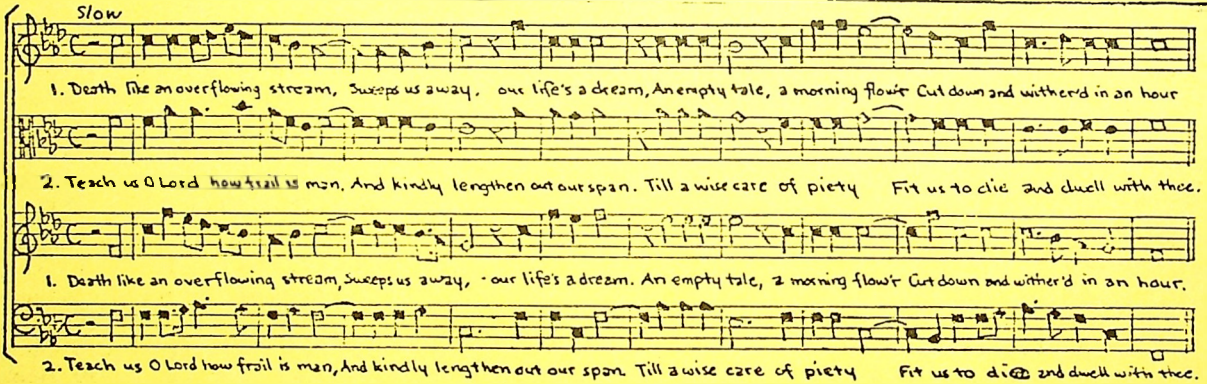 Slow
1. Death like an overflowing stream, Sweeps us away, our life's a dream, An empty tale, a morning flow'r Cut down and wither'd in an hour
2. Teach us O Lord how frail is man, And kindly lengthen out our span. Till a wise care of piety Fit us to die and dwell with thee.
1. Death like an overflowing stream, Sweeps us away, our life's a dream. An empty tale, a morning flow'r Cut down and wither'd in an hour.
2. Teach us O Lord how frail is man, And kindly lengthen out our span Till a wise care of piety Fit us to die and dwell with thee.